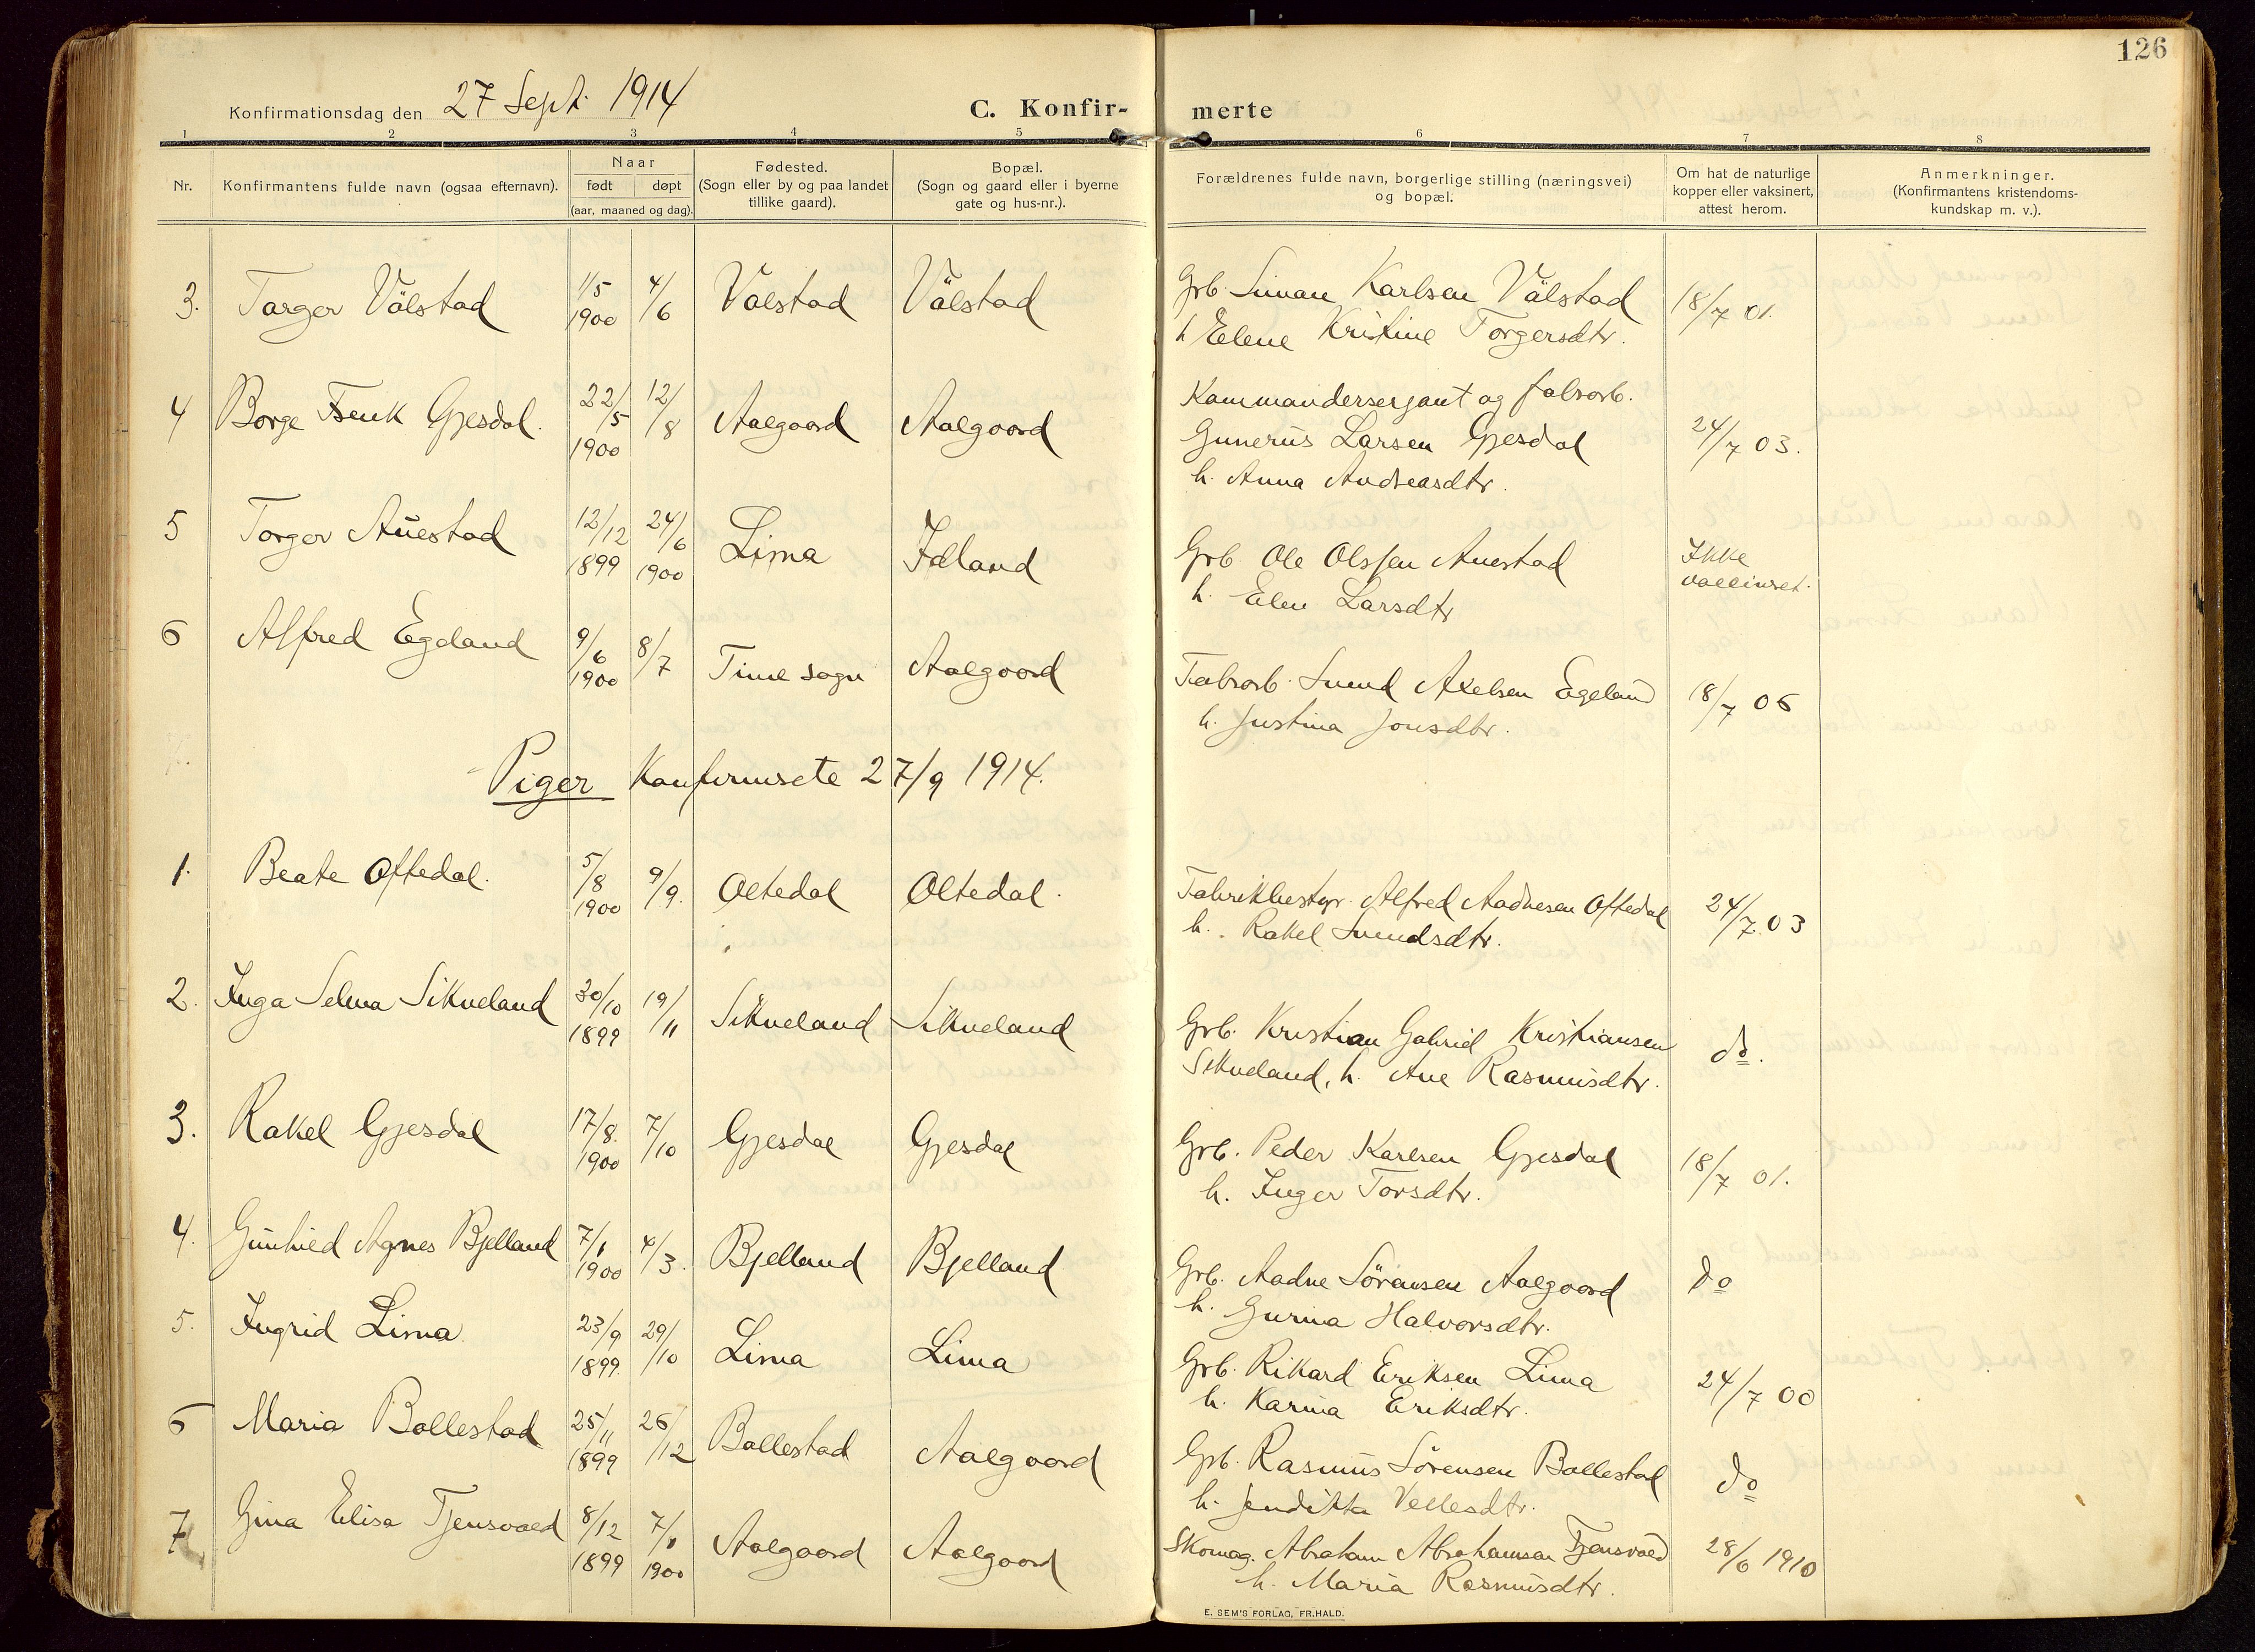 126
Konfirmationsdag den 27 Sept. 1914
C. Konfir-
merte
1 2 3 4 5 6 7 8
Nr.
Konfirmantens fulde navn (ogsaa efternavn).
Naar
født døpt
(aar, maaned og dag).
Fødested.
(Sogn eller by og paa landet
tillike gaard).
Bopæl.
(Sogn og gaard eller i byerne
gate og hus-nr.).
Forældrenes fulde navn, borgerlige stilling (næringsvei)
og bopæl.
Om hat de naturlige
kopper eller vaksinert,
attest herom.
Anmerkninger.
(Konfirmantens kristendoms-
kundskap m. v.).
3. Targer Välstad 1/5 1900 4/6 Valstad Välstad
Grb. Siman Karlsen Välstad 18/7 01.
h Elene Kristine Torgersdtr.
4 Borge Gjesdal. 22/5 1900 12/8 Aalgaard Aalgaard
Kommandersergant og fabrarb.
Gunerus Larsen Gjesdal 24/7 03.
h. Anna Andreasdtr.
5 Torger Auestad 12/12 1899 24/6 1900 Lima
Grb Ole Olssen Auestad Ikke
h. Elen Larsdtr
6 Alfred Egeland 9/6 1900 8/7 Time sogn Aalgaard
Fabrarb. Svend Axelsen Egeland 18/7 06
h. Justina Jonsdtr.
Piger Konfirmerte 27/9 1914.
1. Beate Oftedal. 5/8 1900 9/9. Oltedal Oltedal.
Fabrikbestyr. Alfred Aadnesen Oftedal 24/7 03
h. Rakel Svendsdtr.
2. Inga Selma Sikveland 30/10 1899 19/11 Sikveland Sikveland
Grb. Kristian Gabriel Kristiansen do.
Sikveland, h. Ane Rasmusdtr.
3. Rakel Gjesdal 17/8. 1900 7/10 Gjesdal Gjesdal
Grb. Peder Karlsen Gjesdal 18/7 01.
h. Inger Torsdtr.
4. Gunhild Agnes Bjelland 7/1 1900 4/3. Bjelland Bjelland
Grb. Aadne Sörensen Aalgaard do
h. Gurina Halvorsdtr.
5. Ingrid Lima 23/9 1899. 29/10 Lima Lima
Grb. Rikard Eriksen Lima 24/7 00
h. Karina Eriksdtr.
6 Maria Bollestad 25/11 1899 26/12 Bollestad Aalgaard
Grb. Rasmus Sörensen Bollestad do
h. Jenditta Vellesdtr.
7. Gina Elisa Tjensvold 8/12 1899 7/1 1900 Aalgaard Aalgaard
Skomag. Abraham Abrahamsen Tjensvold 28/6 1910
h. Maria Rasmusdtr.
E. SEM'S FORLAG, FR.HALD.